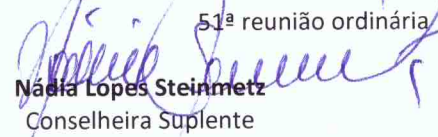 51ª reunião ordinária
Nádia Lopes Steinmetz
Conselheira Suplente